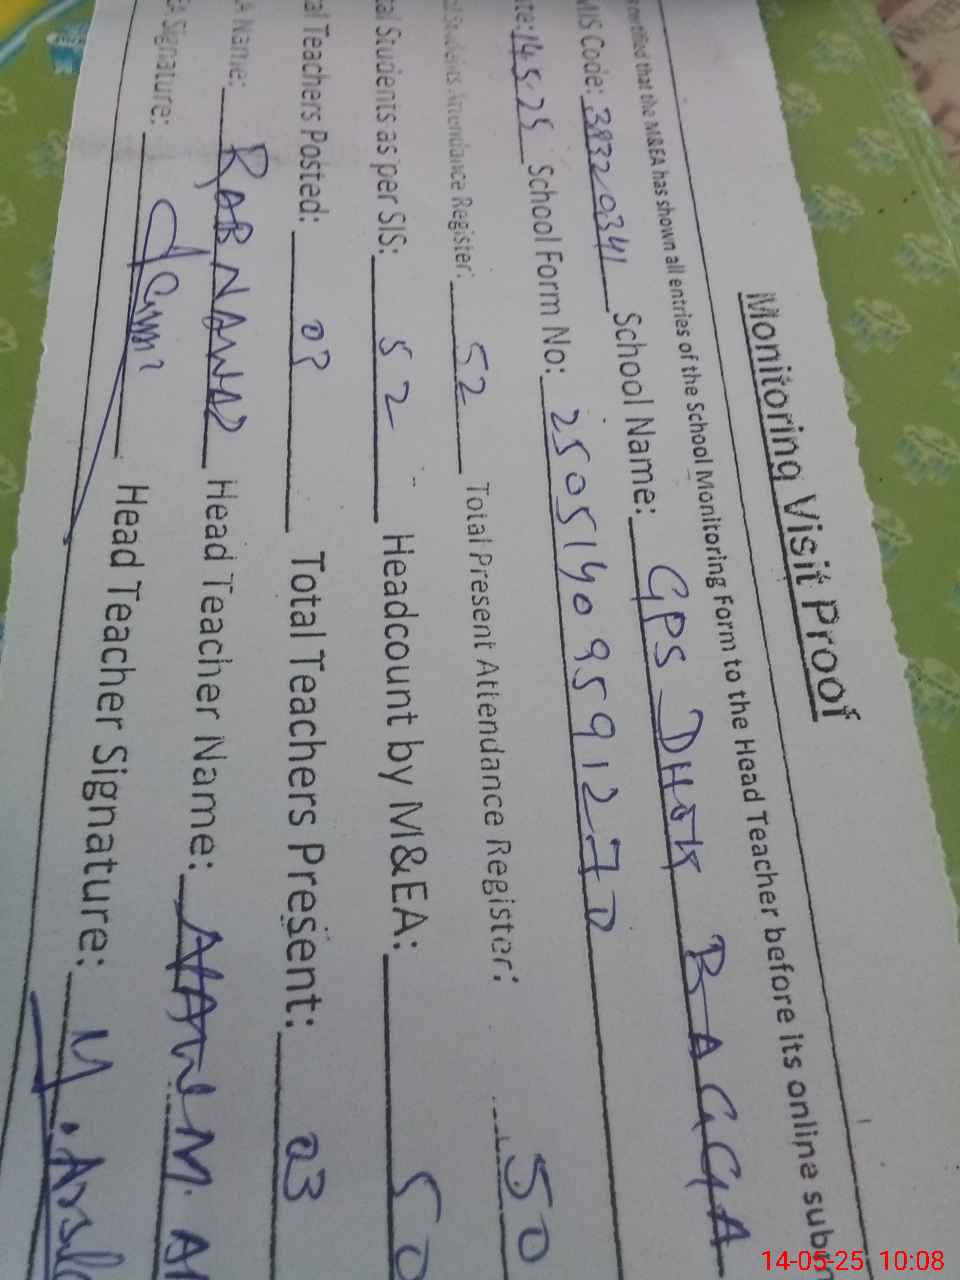 Monitoring Visit Proof
that the M&EA has shown all entries of the School Monitoring Form to the Head Teacher before its online
MIS Code: 38320341 School Name: GPS DHOK BAGGA
te: 14.5.25 School Form No: 2505140959127
Attendance Register: 52 Total Present Attendance Register: 50
tal Students as per SIS: 52 Headcount by M&EA: 50
al Teachers Posted: 03 Total Teachers Present: 03
A Name: RAB NAWAZ Head Teacher Name:
Signature: Head Teacher Signature:
14-05-25 10:08